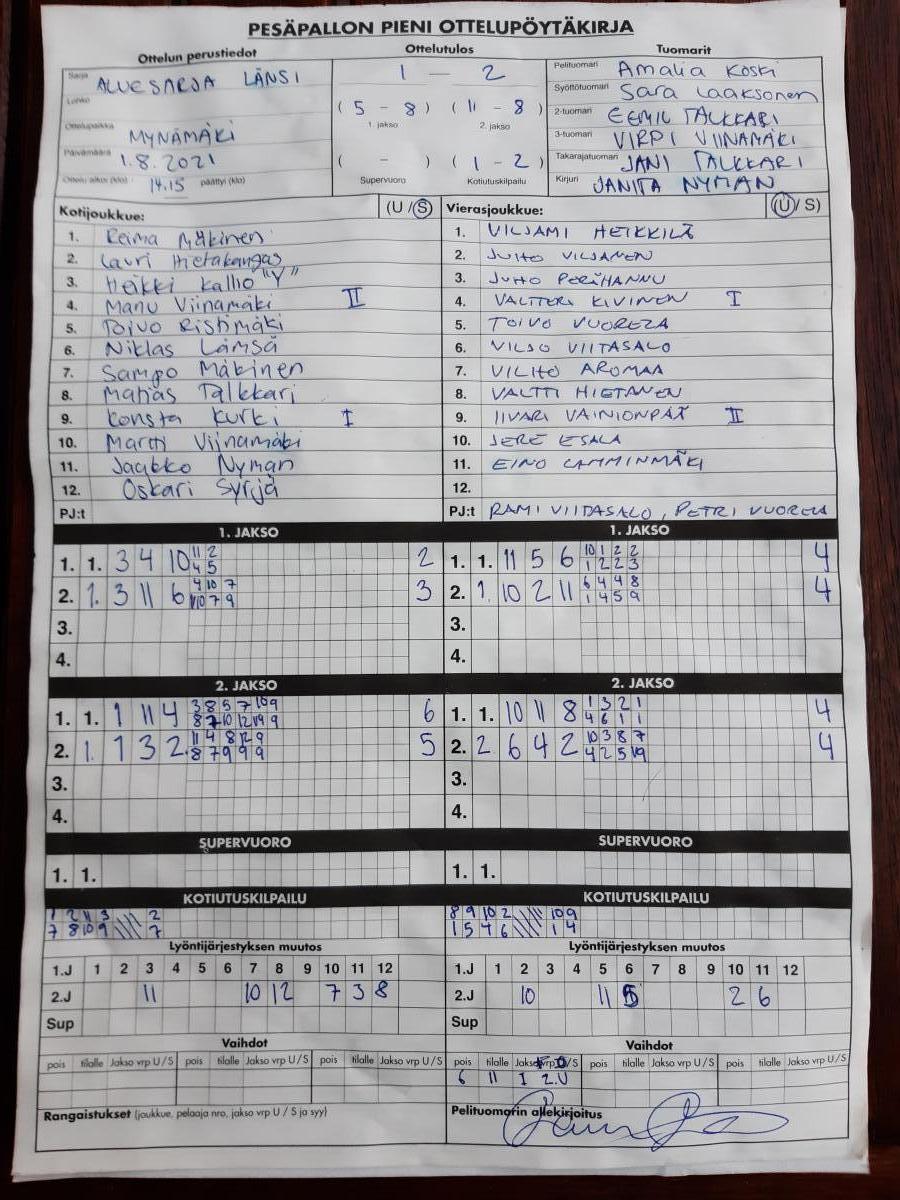 PESÄPALLON PIENI OTTELUPÖYTÄKIRJA
Ottelun perustiedot
Sarja ALUESARJA LÄNSI
Lohko
Ottelupaikka MYNÄMÄKI
Päivämäärä 1.8.2021
Ottelu alkoi (klo) 14.15 päättyi (klo)
Ottelutulos
1 — 2
( 5 - 8 ) ( 11 - 8 )
1. jakso 2. jakso
( - ) ( 1 - 2 )
Supervuoro Kotiutuskilpailu
Tuomarit
Pelituomari Amalia Koski
Syöttötuomari Sara Laaksonen
2-tuomari EEMIL TALKKARI
3-tuomari VIRPI VIINAMÄKI
Takarajatuomari JANI TALKKARI
Kirjuri JANITA NYMAN
Kotijoukkue: (U / S)
1. Reima Mäkinen
2. Lauri Hietakangas
3. Heikki Kallio "Y"
4. Manu Viinamäki II
5. Toivo Ristimäki
6. Niklas Lämsä
7. Sampo Mäkinen
8. Matias Talkkari
9. Konsta Kurki I
10. Martti Viinamäki
11. Jaakko Nyman
12. Oskari Syrjä
PJ:t
Vierasjoukkue: (U / S)
1. VILJAMI HEIKKILÄ
2. JUHO VILJANEN
3. JUHO PERÄHANNU
4. VALTTERI KIVINEN I
5. TOIVO VUORELA
6. VILSO VIITASALO
7. VILHO AROMAA
8. VALTTI HIETANEN
9. IIVARI VAINIONPÄÄ II
10. JERE ESALA
11. EINO LAMMINMÄKI
12.
PJ:t RAMI VIITASALO, PETRI VUORELA
1. JAKSO
1. 1. 3 4 10 11 2 2
4 5
2. 1. 3 11 6 4 10 7 3
10 7 9
3.
4.
1. JAKSO
1. 1. 11 5 6 10 1 2 2 4
1 2 2 3
2. 1. 10 2 11 6 4 4 8 4
1 4 5 9
3.
4.
2. JAKSO
1. 1. 1 11 4 3 8 5 7 10 9 6
8 7 10 12 9
2. 1. 1 3 2 11 4 8 12 9 5
8 7 9 9 9
3.
4.
2. JAKSO
1. 1. 10 11 8 1 3 2 1 4
4 6 1 1
2. 2 6 4 2 10 3 8 7 4
4 2 5
3.
4.
SUPERVUORO
1. 1.
SUPERVUORO
1. 1.
KOTIUTUSKILPAILU
1 2 11 3 2
7 8 10 9 7
KOTIUTUSKILPAILU
8 9 10 2 10 9
1 5 4 6 1 4
Lyöntijärjestyksen muutos
1.J 1 2 3 4 5 6 7 8 9 10 11 12
2.J 11 10 12 7 3 8
Sup
Lyöntijärjestyksen muutos
1.J 1 2 3 4 5 6 7 8 9 10 11 12
2.J 10 11 5 2 6
Sup
Vaihdot
pois tilalle Jakso vrp U/S pois tilalle Jakso vrp U/S pois tilalle Jakso vrp U/S
Vaihdot
pois tilalle Jakso vrp U/S pois tilalle Jakso vrp U/S pois tilalle Jakso vrp U/S
6 11 I 2.U
Rangaistukset (joukkue, pelaaja nro, jakso vrp U / S ja syy)
Pelituomarin allekirjoitus